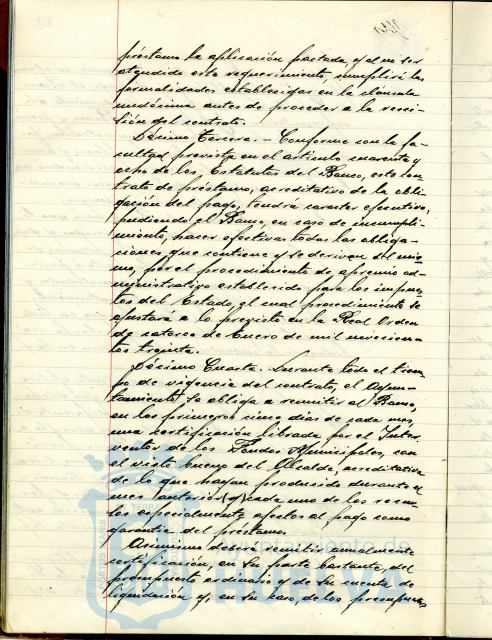 préstamo la aplicación pactada, y al no ser
atendido este requerimiento, cumplirá las
formalidades establecidas en la cláusula
undécima antes de proceder a la resci-
sión del contrato.
Décimo Tercera. - Conforme con la fa-
cultad prevista en el artículo cuarenta y
ocho de los Estatutos del Banco, este con-
trato de préstamo, acreditativo de la obli-
gación del pago, tendrá caracter ejecutivo,
pudiendo el Banco, en caso de incumpli-
miento, hacer efectivas todas las obliga-
ciones que contiene y se derivan del mis-
mo, por el procedimiento de apremio ad-
ministrativo establecido para los impues-
tos del Estado, el cual procedimiento se
ajustará a lo previsto en la Real Orden
de catorce de Enero de mil novecien-
tos treinta.
Décimo Cuarta. Durante todo el tiem-
po de vigencia del contrato, el Ayun-
tamiento se obliga a remitir al Banco,
en los primeros cinco días de cada mes,
una certificación librada por el Inter-
ventor de los Fondos Municipales, con
el visto bueno del Alcalde, acreditativa
de lo que hayan producido durante el
mes anterior cada uno de los recur-
sos especialmente afectos al pago como
garantía del préstamo.
Asimismo deberá remitir anualmente
certificación, en su parte bastante, del
presupuesto ordinario y de su cuenta de
liquidación y, en su caso, de los presupues-
Ayuntamiento de